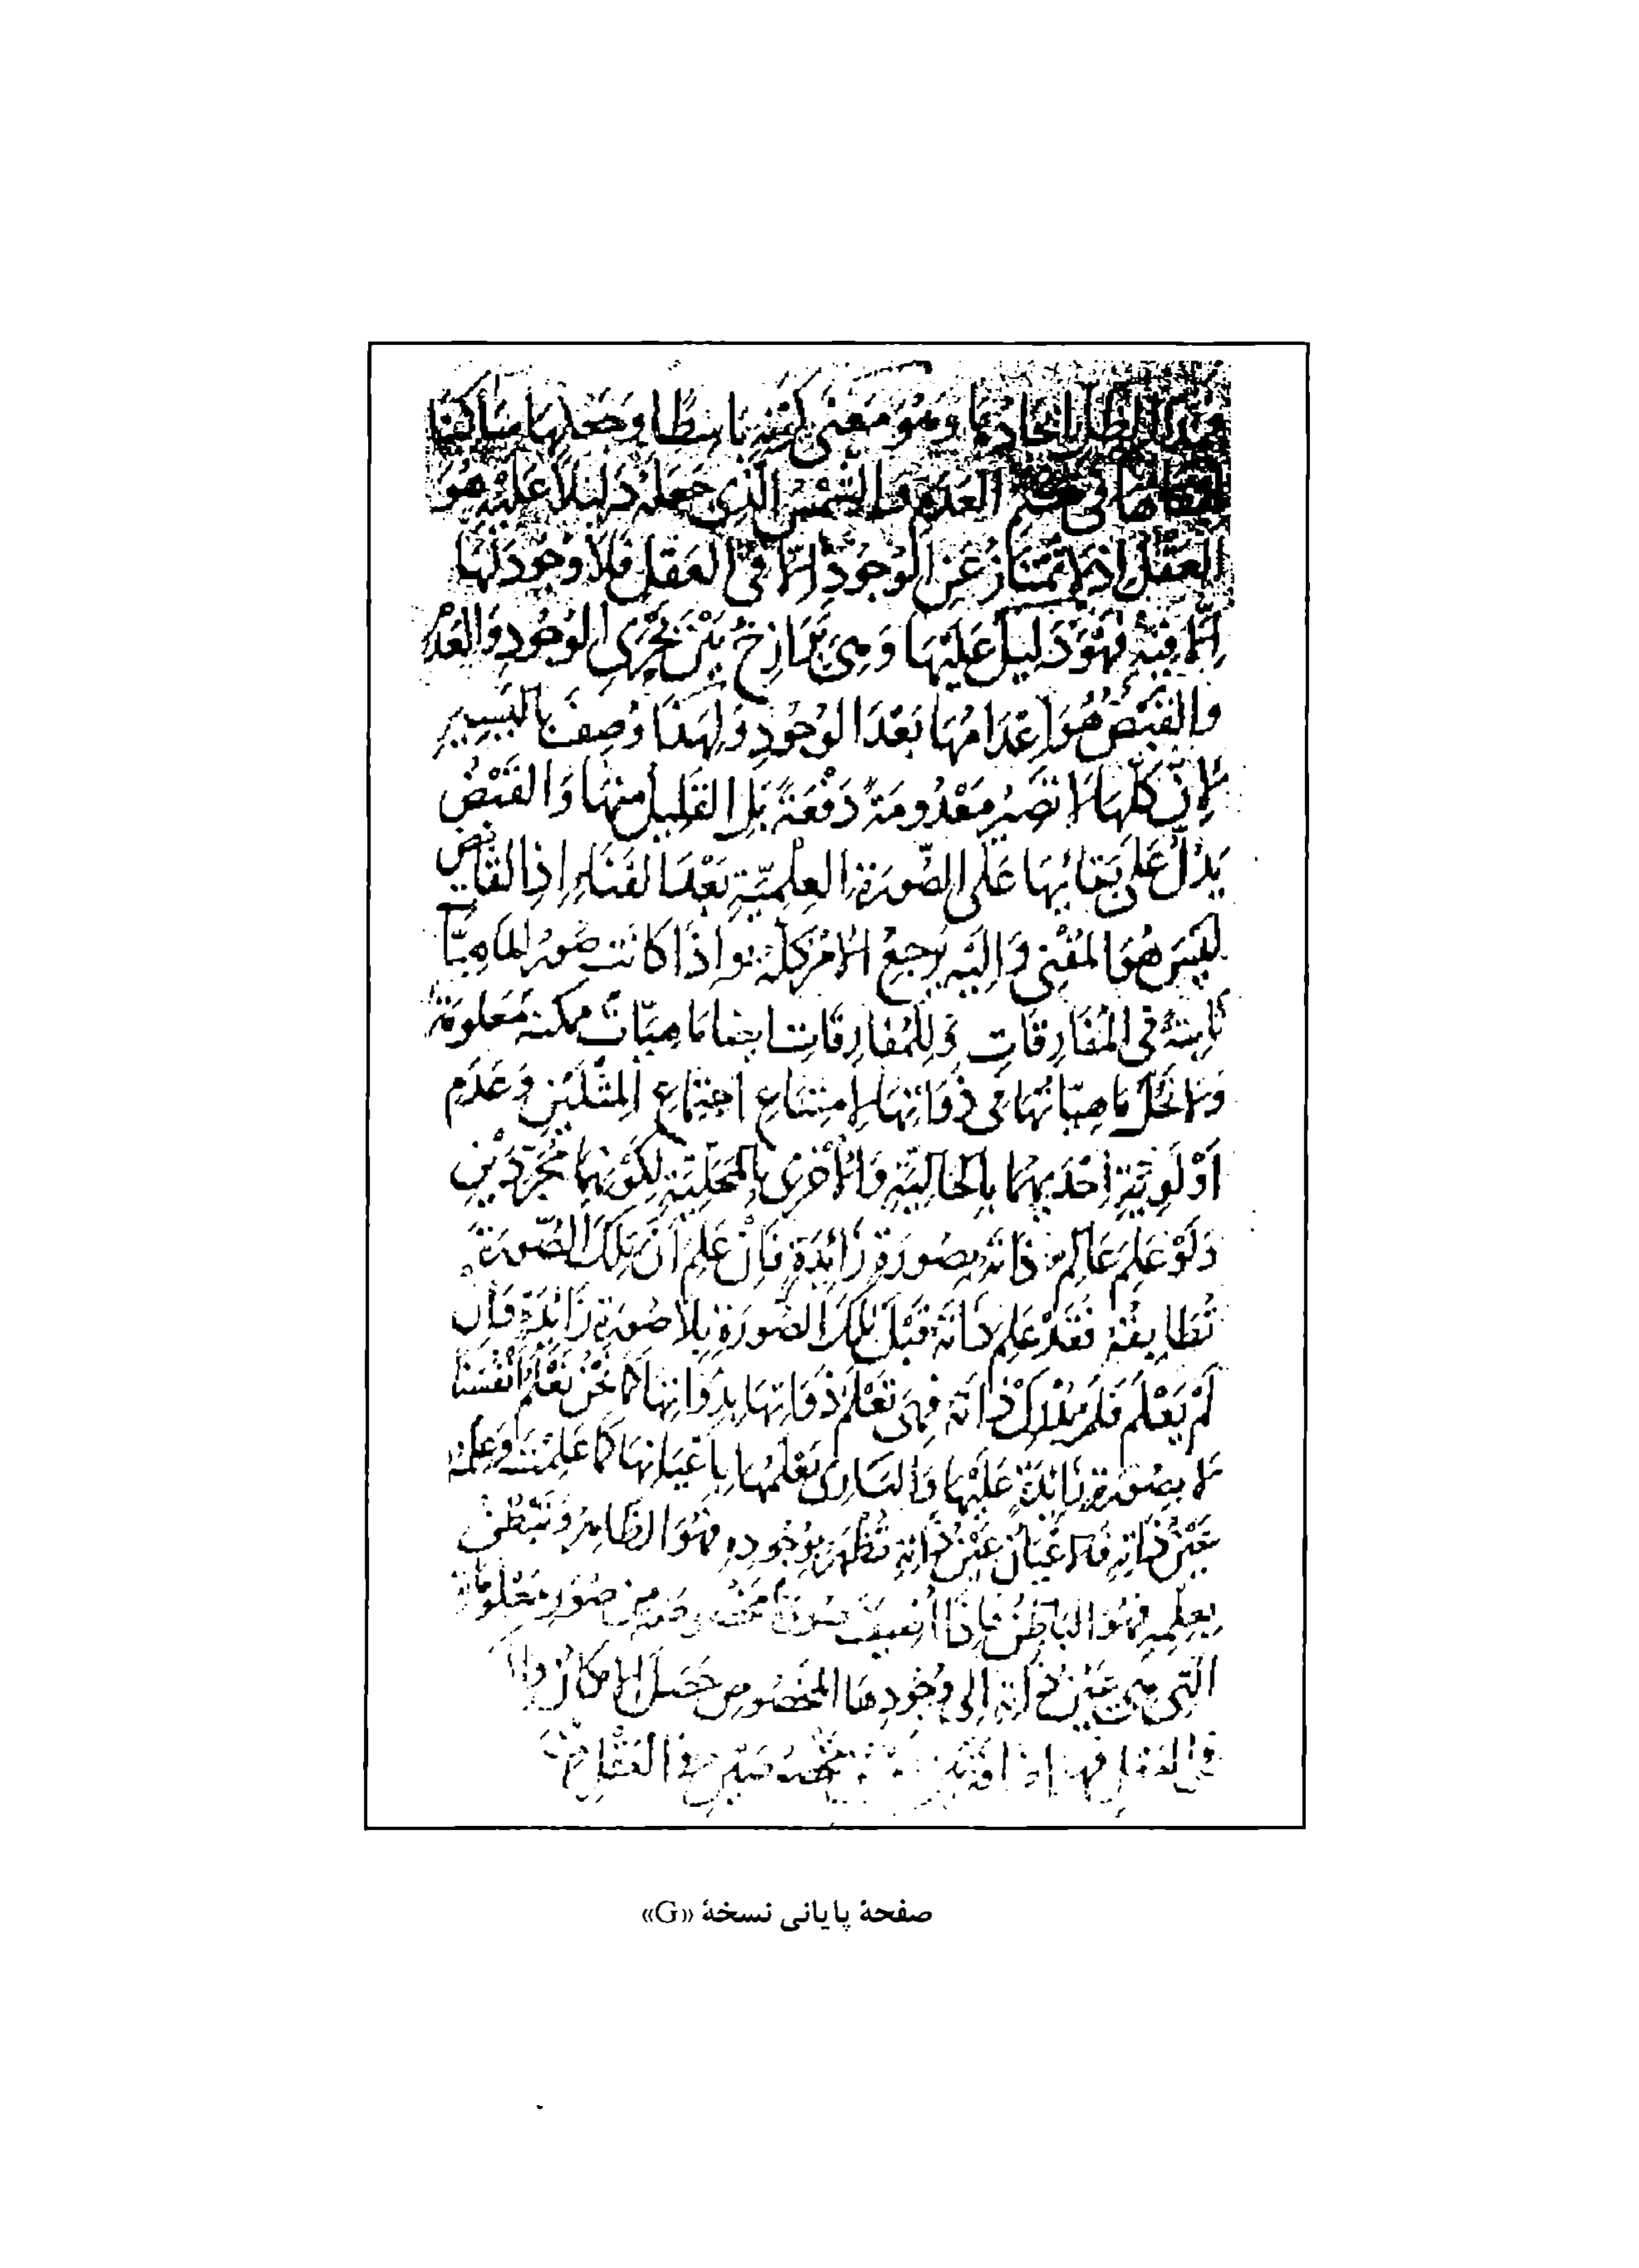 وهو معنى كونه باسطا وجعلها ساكنا
في العدم والشمس الذي جعله دليلا عليه هو
العقل اذ لا تمتاز عن الوجود الا في العقل فلا وجود لها
الا فيه فهو دليل عليها وهي برازخ بين بحرى الوجود والعدم
والقبض هو اعدامها بعد الوجود ولهذا وصف باليسير
لان كلها لا تصير معدومة دفعة بل القليل منها والقبض
يدل على بقائها على الصورة العلمية بعد الفناء اذ القابض
ليس هو المفنى واليه يرجع الامر كله واذا كانت صور الماهيات
ثابتة في المفارقات وللمفارقات ايضا ماهيات ممكنة معلومة
ولا تحل ماهياتها في ذواتها لامتناع اجتماع المثلين وعدم
اولوية احديهما بالحالية والاخرى بالمحلية لكونهما مجردين
ولو علم عالم ذاته بصورة زائدة فان علم ان تلك الصورة
تطابقه فقد علم ذاته قبل تلك الصورة بلا صورة زائدة فان
لم يعلم فلم يدرك ذاته فهي تعلم ذواتها بذواتها كما نحن نعلم انفسنا
لا بصورة زائدة عليها والبارى يعلمها باعيانها كما علمت وعلمه
عين ذاته فالاعيان عين ذاته تظهر بوجوده فهو الظاهر وتبطن
بعلمه فهو الباطن فاذا اضيفت صورة من صور معلوماته
التي هي عين ذاته الى وجودها المخصوص حصل الامكان
في العقل
صفحهٔ پایانی نسخهٔ «G»